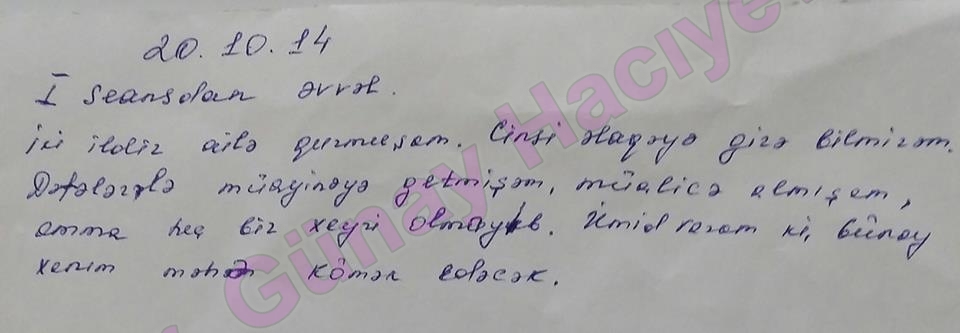 20.10.14
I seansdan əvvəl.
İki ildir ailə qurmuşam. Cinsi əlaqəyə girə bilmirəm.
Dəfələrlə müayinəyə getmişəm, müalicə almışam,
amma heç bir xeyri olmayıb. Ümid varam ki, Günay
xanım mənə kömək edəcək.
Günay Hacıye